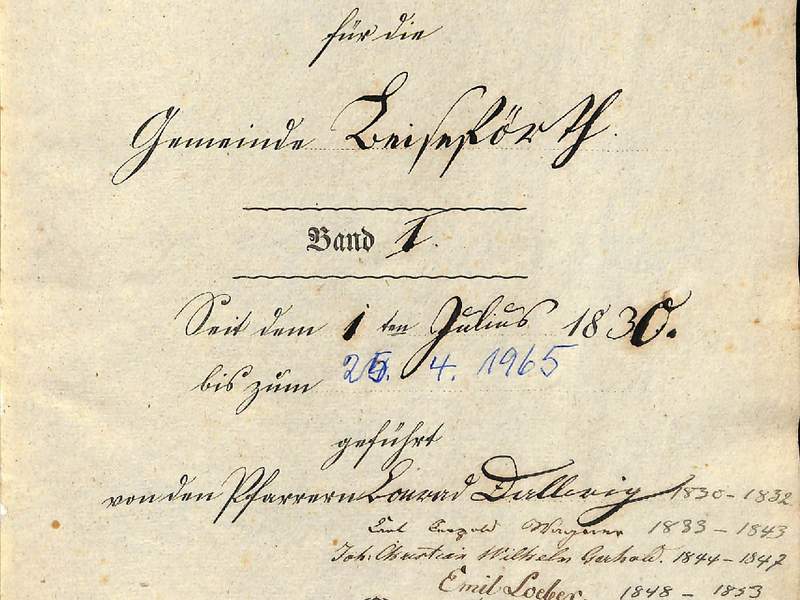 für die
Gemeinde Beiseförth.
Band I.
Seit dem 1ten Julius 1830.
bis zum 25. 4. 1965
geführt
von den Pfarrern Conrad Dallwig 1830 - 1832
Carl Leopold Wagner 1833 - 1843
Joh. Christian Wilhelm Gerhold. 1844 - 1847
Emil Loeber. 1848 - 1853